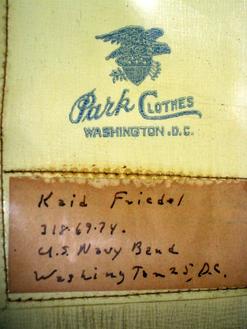 Park Clothes
WASHINGTON.D.C.
Kaid Friedel
318-69-74.
U.S. Navy Band
Washington 25, D.C.